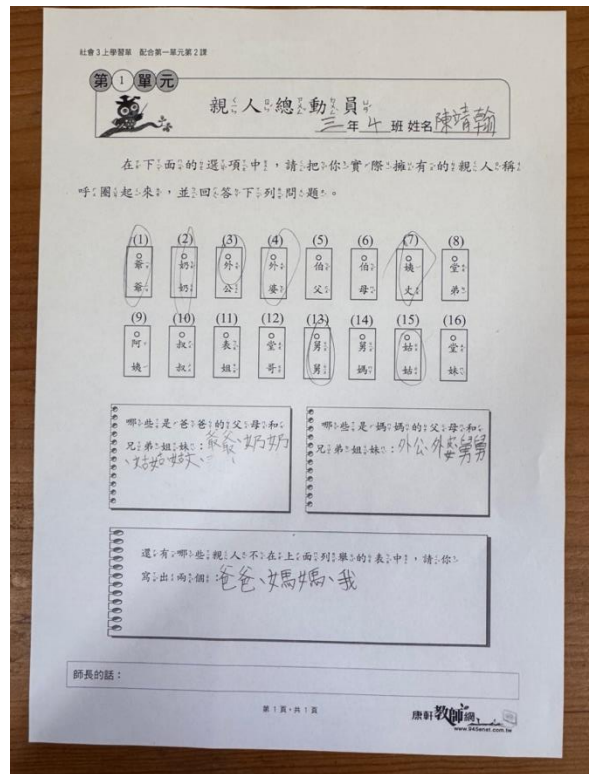 社會3上學習單 配合第一單元第2課
第1單元
親人總動員
三年4班 姓名陳靖翰
在下面的選項中，請把你實際擁有的親人稱
呼圈起來，並回答下列問題。
(1) (2) (3) (4) (5) (6) (7) (8)
爺爺 奶奶 外公 外婆 伯父 伯母 姨丈 堂弟
(9) (10) (11) (12) (13) (14) (15) (16)
阿姨 叔叔 表姐 堂哥 舅舅 舅媽 姑姑 堂妹
哪些是爸爸的父母和
兄弟姐妹：爺爺、奶奶
、姑姑、
哪些是媽媽的父母和
兄弟姐妹：外公、外婆、舅舅
還有哪些親人不在上面列舉的表中，請你
寫出兩個：爸爸、媽媽、我
師長的話：
第1頁，共1頁
康軒教師網
www.945enet.com.tw